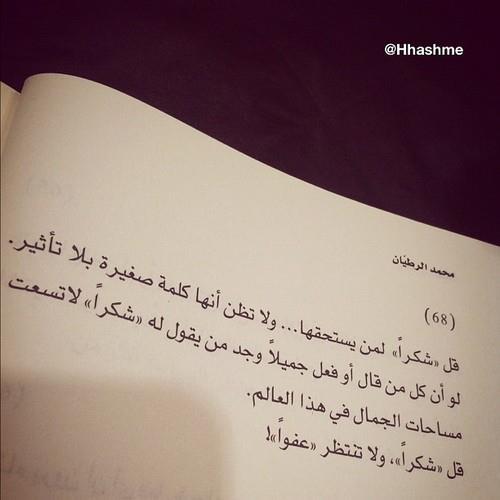 @Hhashme
محمد الرطيّان
(68)
قل «شكراً» لمن يستحقها... ولا تظن أنها كلمة صغيرة بلا تأثير.
لو أن كل من قال أو فعل جميلاً وجد من يقول له «شكراً» لاتسعت
مساحات الجمال في هذا العالم.
قل «شكراً»، ولا تنتظر «عفواً»!